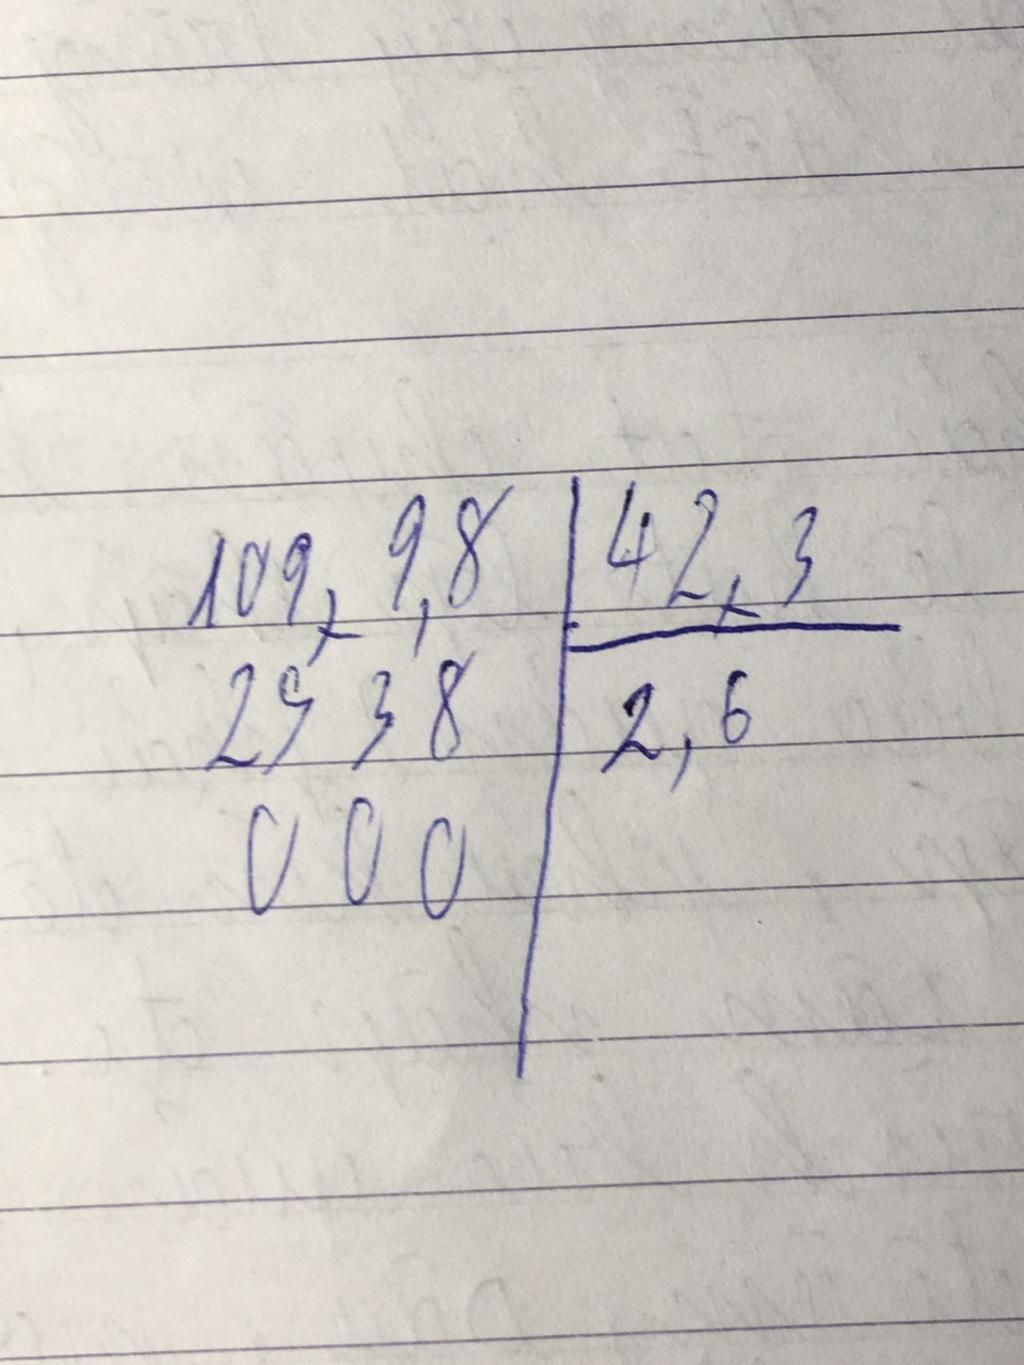 109, 9,8 | 42,3
2538 | 2,6
000